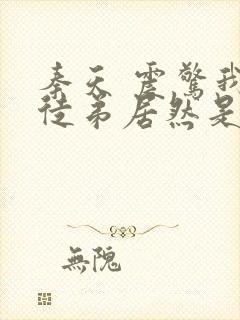 奏天 震驚我
徒弟居然是
無隗